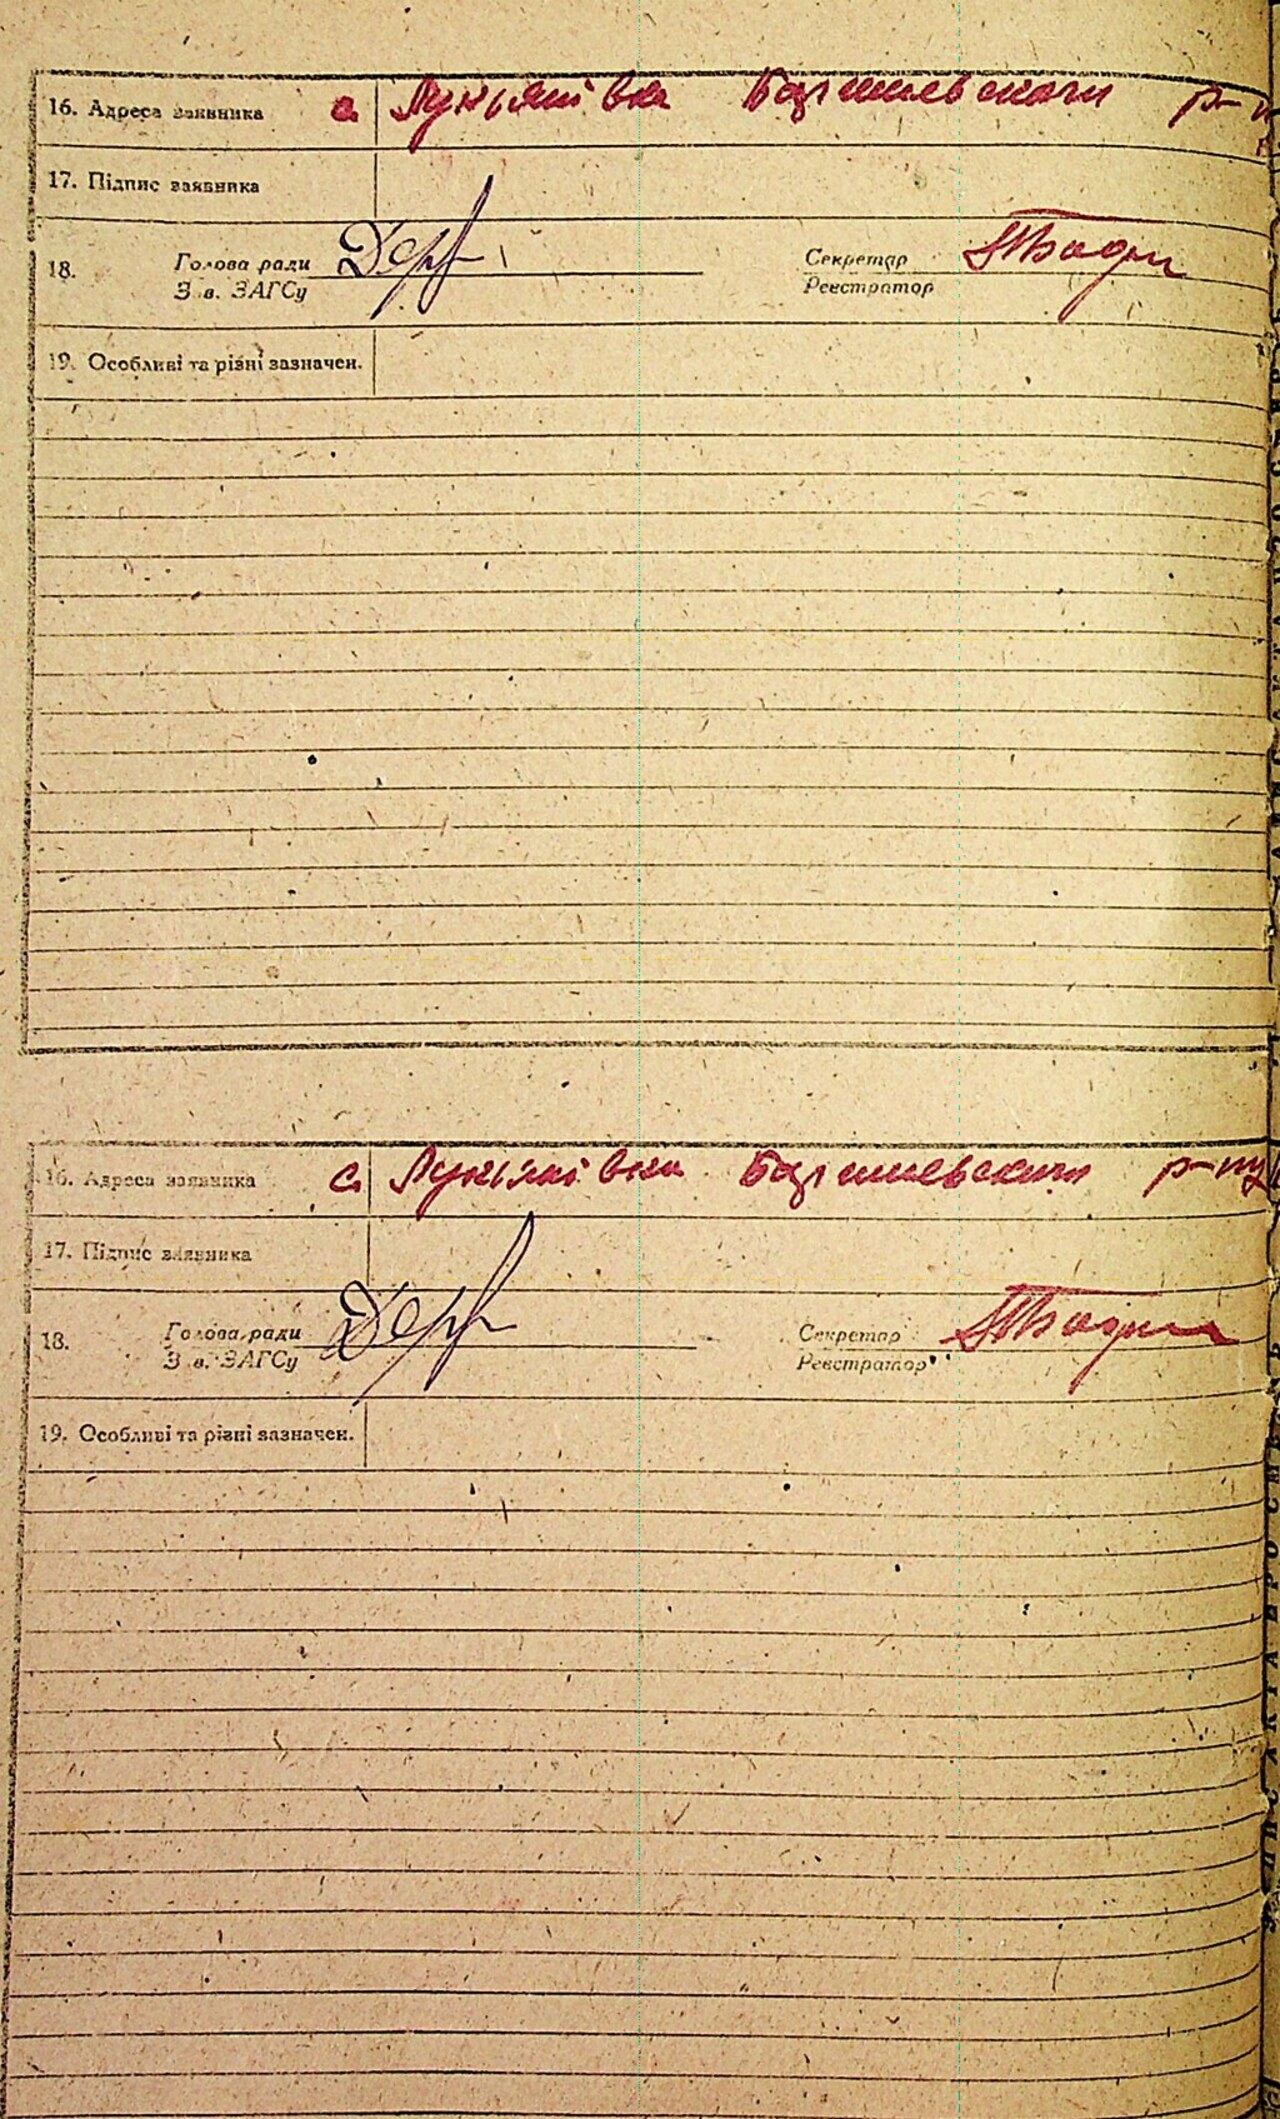 16. Адреса заявника с. Лукьянівка Баришевскаги р-н
17. Підпис заявника
18. Голова ради Секретар
З.в. ЗАГСу Реєстратор
19. Особливі та різні зазначен.
16. Адреса заявника с. Лукьянівка Баришевскаги р-ну
17. Підпис заявника
18. Голова ради Секретар
З.в. ЗАГСу Реєстратор
19. Особливі та різні зазначен.